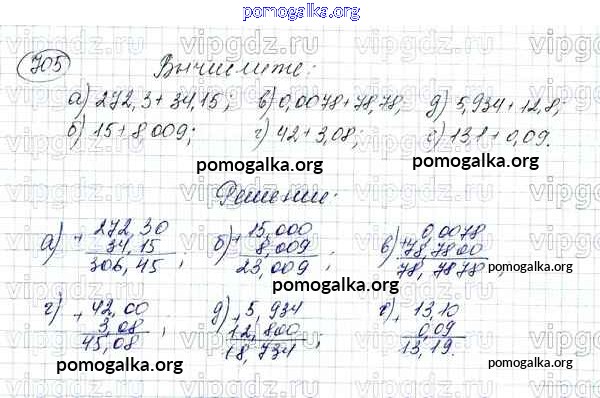 pomogalka.org
705 Вычислите:
а) 272,3+34,15; в) 0,0078+78,78; д) 5,934+12,8;
б) 15+8,009; г) 42+3,08; е) 13,1+0,09.
pomogalka.org pomogalka.org
Решение:
а) + 272,30 б) + 15,000 в) + 0,0078
34,15 8,009 78,7800
306,45; 23,009; 78,7878;
pomogalka.org pomogalka.org
г) + 42,00 д) + 5,934 е) + 13,10
3,08 12,800 0,09
45,08; 18,734; 13,19.
pomogalka.org pomogalka.org
vipgdz.ru vipgdz.ru vipgdz.ru